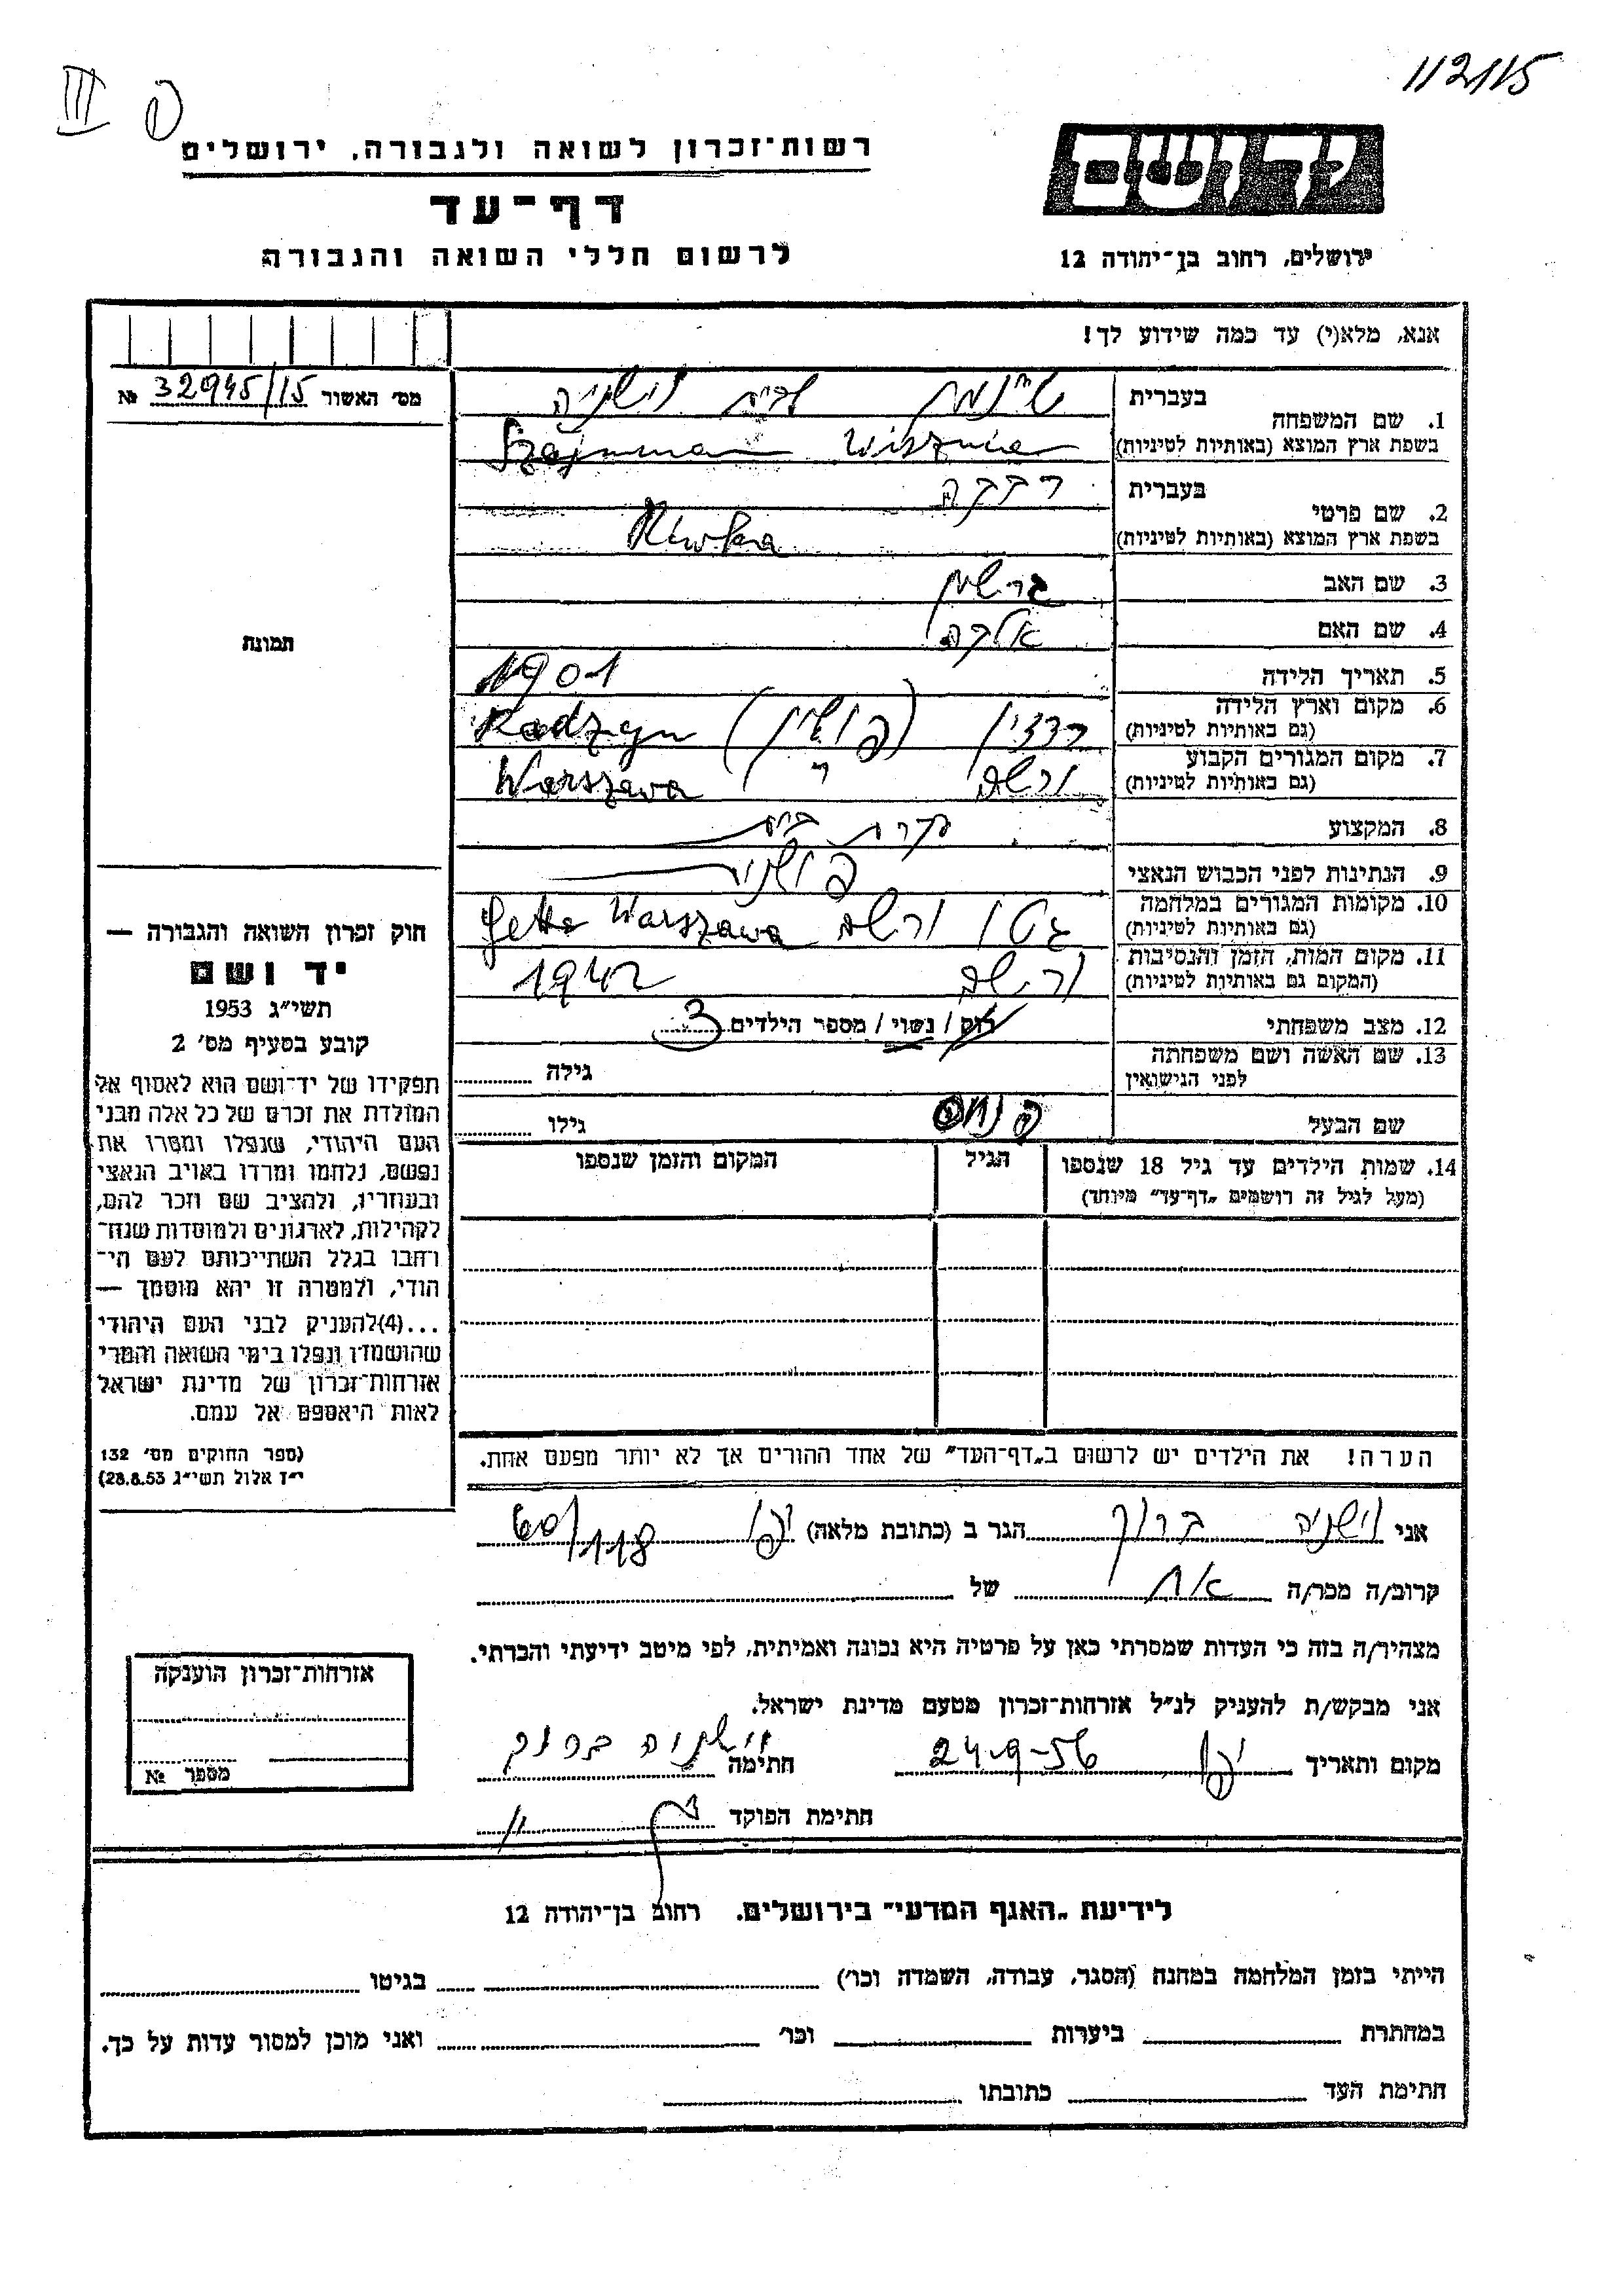 112115
III
רשות־זכרון לשואה ולגבורה, ירושלים
יד ושם
דף־עד
לרשום חללי השואה והגבורה
ירושלים, רחוב בן־יהודה 12
אנא, מלא(י) עד כמה שידוע לך!
מס׳ האשור 32945/15 №
1. שם המשפחה בעברית שיינמן לבית וישניה
בשפת ארץ המוצא (באותיות לטיניות) Szajnman Wisznia
2. שם פרטי בעברית רבקה
בשפת ארץ המוצא (באותיות לטיניות) Riwka
3. שם האב גרשון
4. שם האם
5. תאריך הלידה 1901
6. מקום וארץ הלידה (גם באותיות לטיניות) רדזין (פולין) Radzyn
7. מקום המגורים הקבוע (גם באותיות לטיניות) ורשה Warszawa
8. המקצוע עקרת בית
9. הנתינות לפני הכבוש הנאצי פולנית
10. מקומות המגורים במלחמה (גם באותיות לטיניות) גטו ורשה Getto Warszawa
11. מקום המות, הזמן והנסיבות (המקום גם באותיות לטיניות) ורשה 1942
12. מצב משפחתי רוק / נשוי / מספר הילדים 3
13. שם האשה ושם משפחתה לפני הנישואין גילה
שם הבעל פנחס גילו
14. שמות הילדים עד גיל 18 שנספו הגיל המקום והזמן שנספו
(מעל לגיל זה רושמים „דף־עד״ מיוחד)
הערה! את הילדים יש לרשום ב„דף־העד״ של אחד ההורים אך לא יותר מפעם אחת.
תמונה
חוק זכרון השואה והגבורה —
יד ושם
תשי״ג 1953
קובע בסעיף מס׳ 2
תפקידו של יד־ושם הוא לאסוף אל
המולדת את זכרם של כל אלה מבני
העם היהודי, שנפלו ומסרו את
נפשם, נלחמו ומרדו באויב הנאצי
ובעוזריו, ולהציב שם וזכר להם,
לקהילות, לארגונים ולמוסדות שנח־
רבו בגלל השתייכותם לעם הי־
הודי, ולמטרה זו יהא מוסמך —
...(4)להעניק לבני העם היהודי
שהושמדו ונפלו בימי השואה והמרי
אזרחות־זכרון של מדינת ישראל
לאות היאספם אל עמם.
(ספר החוקים מס׳ 132
י״ז אלול תשי״ג 28.8.53)
אני וישניה ברוך הגר ב (כתובת מלאה) יפו 60/118
קרוב/ה מכר/ה אח של
מצהיר/ה בזה כי העדות שמסרתי כאן על פרטיה היא נכונה ואמיתית, לפי מיטב ידיעתי והכרתי.
אני מבקש/ת להעניק לנ״ל אזרחות־זכרון מטעם מדינת ישראל.
מקום ותאריך יפו 24-9-56 חתימה וישניה ברוך
חתימת הפוקד
אזרחות־זכרון הוענקה
מספר №
לידיעת „האגף המדעי״ בירושלים. רחוב בן־יהודה 12
הייתי בזמן המלחמה במחנה (הסגר, עבודה, השמדה וכו׳) בגיטו
במחתרת ביערות וכו׳ ואני מוכן למסור עדות על כך.
חתימת העד כתובתו